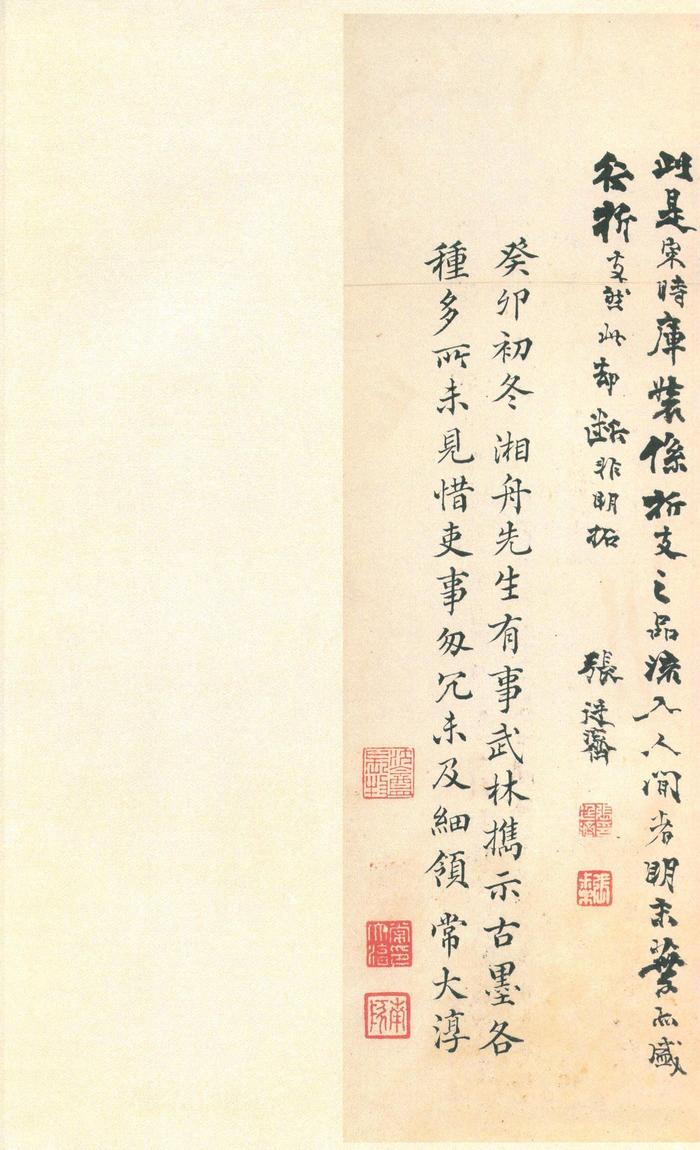 此是宋時庫裝係折支之品流入人間者明末葉石盛
行折支然此却斷非明拓 張廷齋
癸卯初冬湘舟先生有事武林攜示古墨各
種多所未見惜吏事匆冗未及細領 常大淳